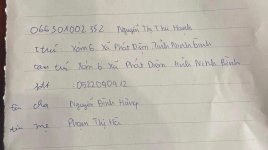 066301002352 Nguyễn Thị Thu Hạnh
trú xóm 6 xã Phát Diệm tỉnh Ninh Bình
trú xóm 6 xã Phát Diệm tỉnh Ninh Bình
sđt : 0522090912
tên cha Nguyễn Đình Hồng
tên mẹ Phạm Thị Hà